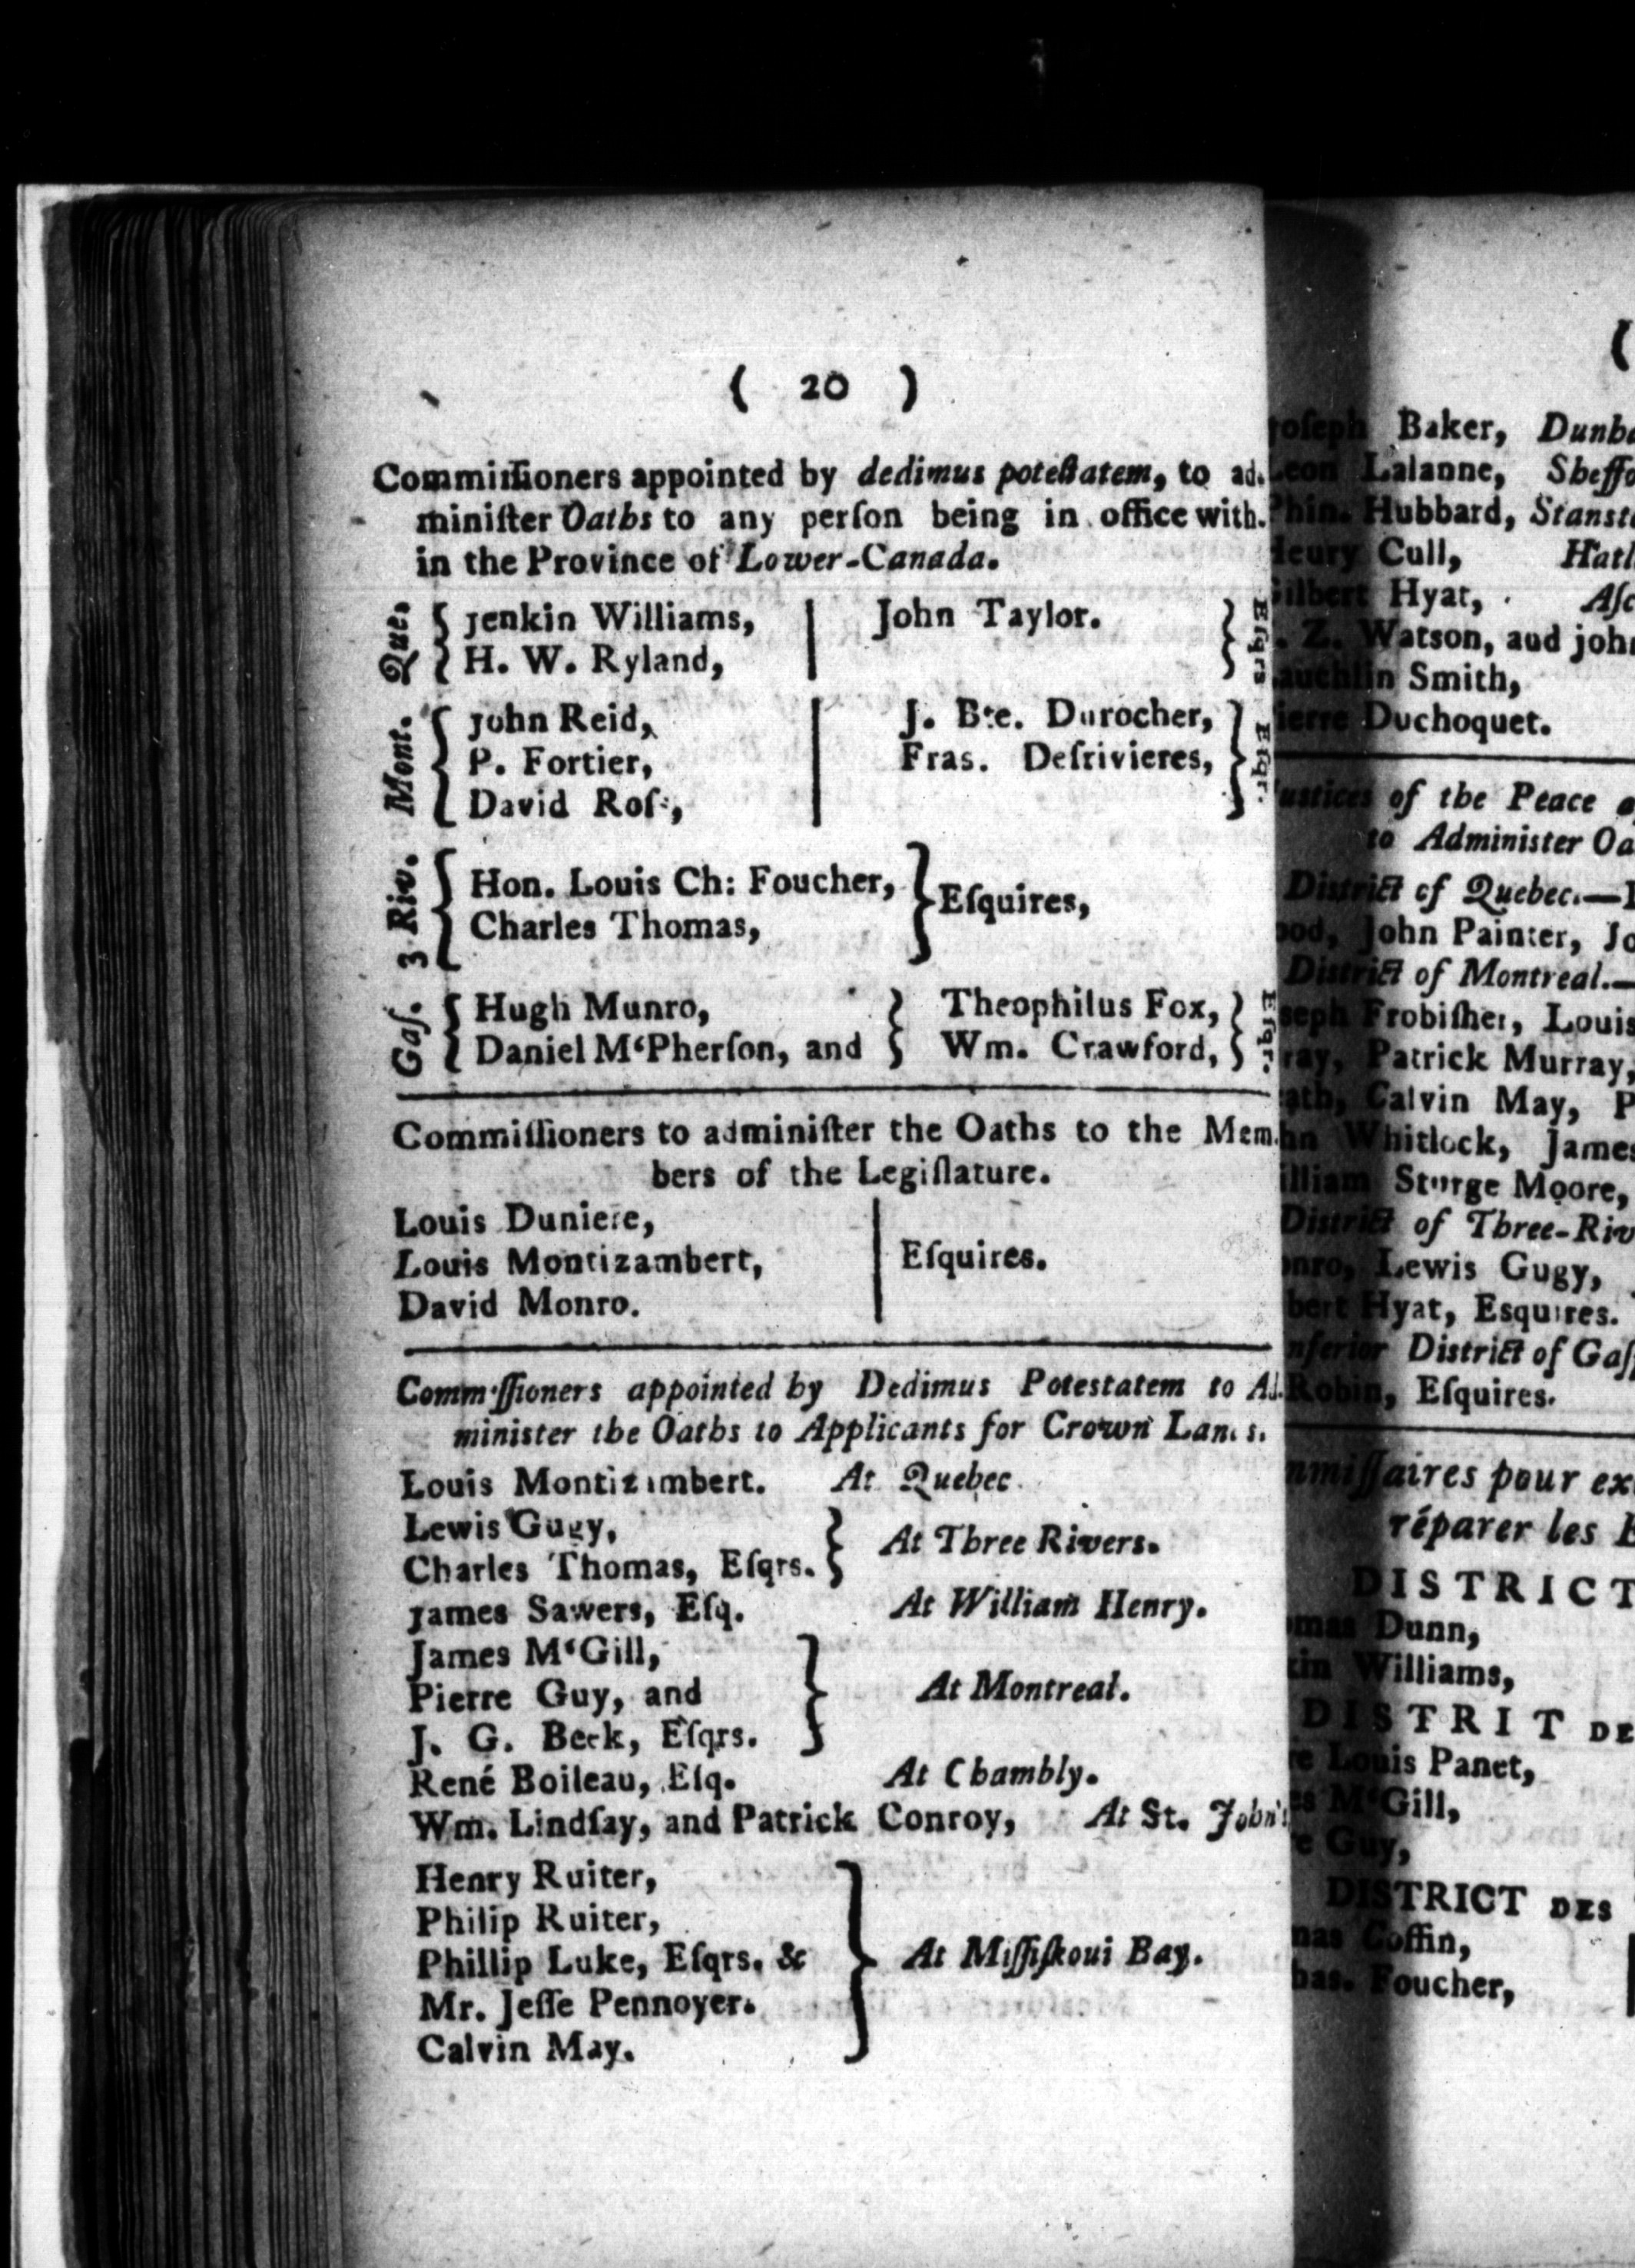 ( 20 )
Commiſſioners appointed by dedimus poteſtatem, to ad-
miniſter Oaths to any perſon being in office with-
in the Province of Lower-Canada.
Que. Jenkin Williams, John Taylor. Eſqrs
H. W. Ryland,
Mont. John Reid, J. Bte. Durocher, Eſqr.
P. Fortier, Fras. Deſrivieres,
David Roſs,
3 Riv. Hon. Louis Ch: Foucher, Eſquires,
Charles Thomas,
Gaſ. Hugh Munro, Theophilus Fox, Eſqr.
Daniel M‘Pherſon, and Wm. Crawford,
Commiſſioners to adminiſter the Oaths to the Mem-
bers of the Legiſlature.
Louis Duniere,
Louis Montizambert, Eſquires.
David Monro.
Commiſſioners appointed by Dedimus Potestatem to Ad-
minister the Oaths to Applicants for Crown Lands.
Louis Montizambert. At Quebec.
Lewis Gugy,
Charles Thomas, Eſqrs. At Three Rivers.
James Sawers, Eſq. At William Henry.
James M‘Gill,
Pierre Guy, and At Montreal.
J. G. Beek, Eſqrs.
René Boileau, Eſq. At Chambly.
Wm. Lindſay, and Patrick Conroy, At St. John's
Henry Ruiter,
Philip Ruiter,
Phillip Luke, Eſqrs. & At Miſſiſkoui Bay.
Mr. Jeſſe Pennoyer.
Calvin May.
(
Joſeph Baker, Dunb
Leon Lalanne, Sheffo
Phin. Hubbard, Stanst
Heury Cull, Hatl
Gilbert Hyat, Aſc
Z. Watson, aud john
Lauchlin Smith,
Pierre Duchoquet.
Justices of the Peace
to Administer Oa
District of Quebec.—
ood, John Painter, Jo
District of Montreal.—
seph Frobiſher, Louis
ray, Patrick Murray,
ath, Calvin May, P
hn Whitlock, James
illiam Sturge Moore,
District of Three-Riv
onro, Lewis Gugy,
bert Hyat, Esquires.
nferior District of Gaſ
Robin, Eſquires.
mmiſſaires pour ex
réparer les
DISTRICT
omas Dunn,
kin Williams,
DISTRIT DE
re Louis Panet,
es M‘Gill,
re Guy,
DISTRICT DES
mas Coffin,
has. Foucher,